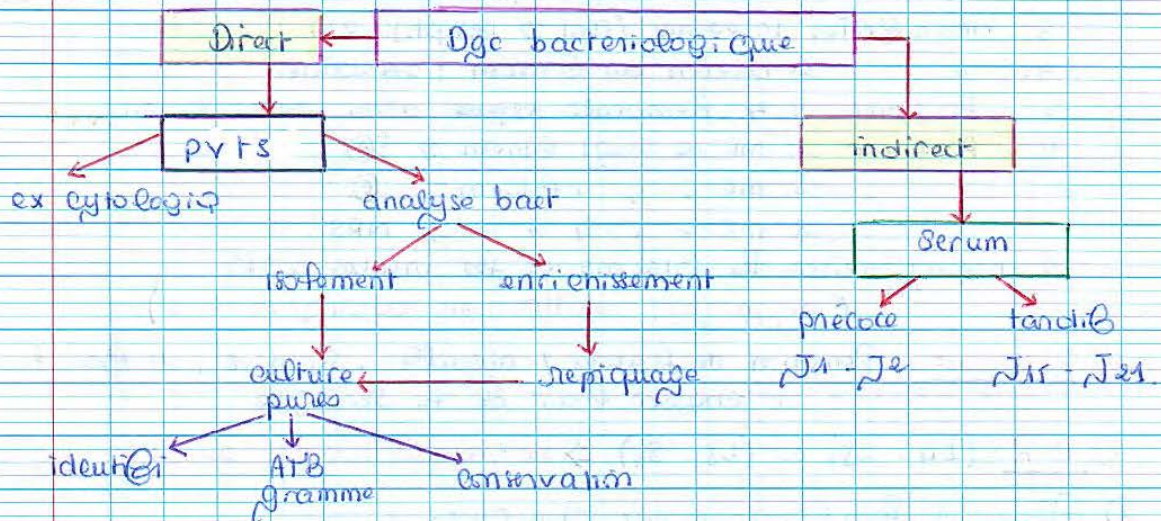 Direct
Dgc bacteriologique
pvts
indirect
ex cytologiq
analyse bact
Serum
isolement
enrichissement
précoce
tardif
J1 - J2
J15 - J21
culture
pures
repiquage
identifi
ATB
gramme
conservation